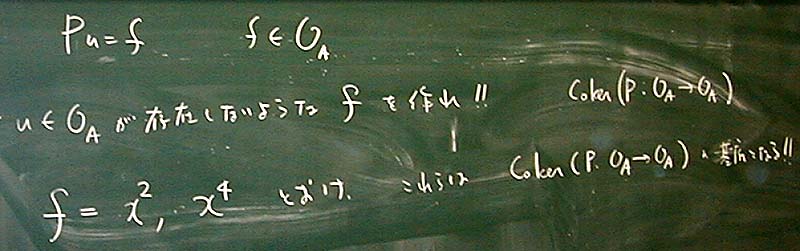 Pu=f f∈O_A
u∈O_A が存在しないような f を作れ!! Coker(P:O_A→O_A)
f = x^2, x^4 とおけ. これらは Coker(P:O_A→O_A) の基底になる!!